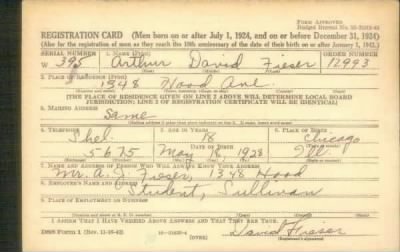 FORM APPROVED.
REGISTRATION CARD (Men born on or after July 1, 1924, and on or before December 31, 1924)
(Also for the registration of men as they reach the 18th anniversary of the date of their birth on or after January 1, 1943.)
SERIAL NUMBER 1. NAME (Print) ORDER NUMBER
W 395 Arthur David Fieser 12993
2. PLACE OF RESIDENCE (Print)
1348 Hood Ave.
[THE PLACE OF RESIDENCE GIVEN ON LINE 2 ABOVE WILL DETERMINE LOCAL BOARD
JURISDICTION; LINE 2 OF REGISTRATION CERTIFICATE WILL BE IDENTICAL]
3. MAILING ADDRESS
Same
4. TELEPHONE 5. AGE IN YEARS 6. PLACE OF BIRTH
Shel. 18 Chicago
DATE OF BIRTH
5675 May 1928 Ill.
7. NAME AND ADDRESS OF PERSON WHO WILL ALWAYS KNOW YOUR ADDRESS
Mr. A. J. Fieser, 1348 Hood
8. EMPLOYER'S NAME AND ADDRESS
Student, Sullivan
9. PLACE OF EMPLOYMENT OR BUSINESS
I AFFIRM THAT I HAVE VERIFIED ABOVE ANSWERS AND THAT THEY ARE TRUE.
DSS Form 1 (Rev. 11-16-42) (OVER) David Fieser